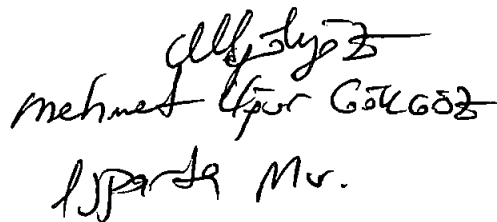 Mehmet Uğur Gökgöz
Isparta Mv.